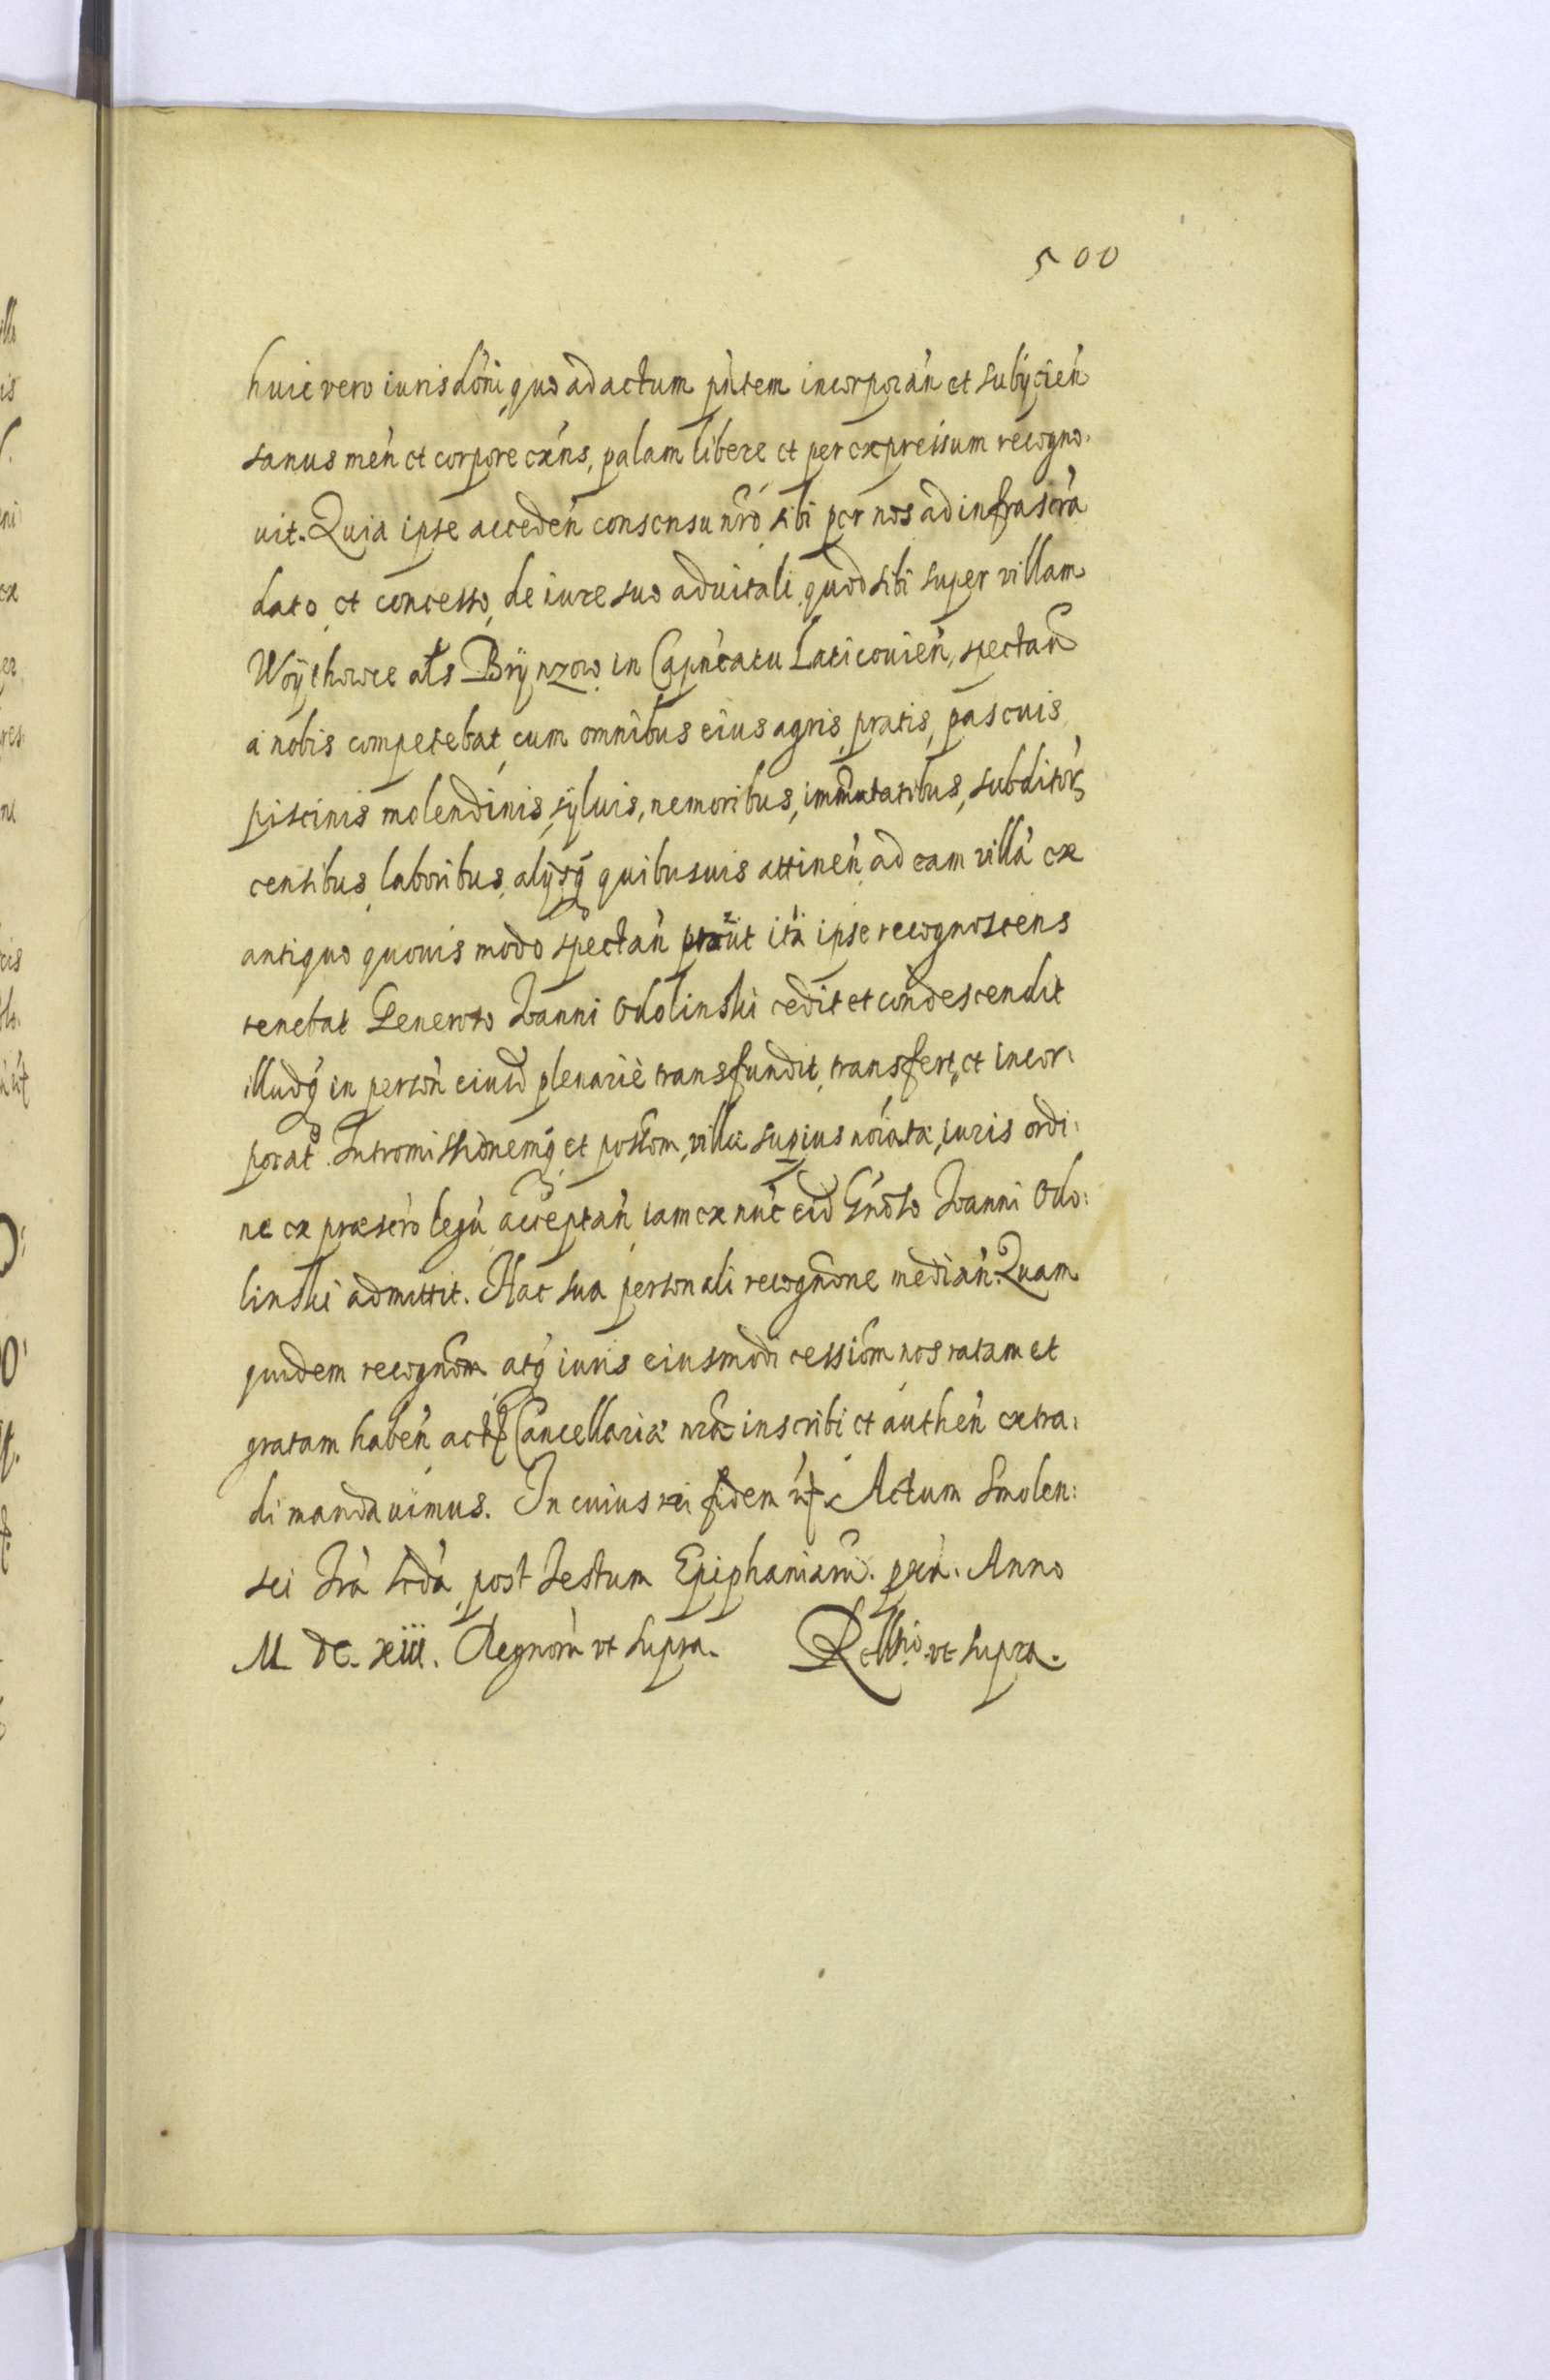 500
huic vero iurisdóni, quo ad actum pńtem incorporań et subÿcień
sanus meń et corpore exńs, palam libere et per expressum recogno:
uit. Quia ipse accedeń consensu nŕo sibi per nos ad infrascŕa
dato, et concesso, de iure suo aduitali, quod sibi super villam
Woÿthowce als Brÿnzow in Capńeatu Laticouień, spectań
a nobis competebat, cum omnibus eius agris, pratis, pascuis,
piscinis molendinis, sÿluis, nemoribus, immutatibus, subditor
censibus, laboribus, alÿsq quibusuis attineń, ad eam villá ex
antiquo quouis modo spectań prout ita ipse recognoscens
tenebat Generoso Ioanni Odolinski cedit et condescendit
illudq in persoń eiusd plenariè transfundit, transfert, et incor:
porat. Intromissionemq et possom, villæ supius noíatæ, iuris ordi:
ne ex præscŕo legú acceptań, iam ex nuć eid Gńoso Ioanni Odo:
linski admittit. Hac sua personali recognóne mediań. Quam
quidem recognóm atq iuris eiusmodi cessióm nos ratam et
gratam habeń, actis Cancellariæ nŕæ inscribi et autheń extra:
di mandauimus. In cuius rei fidem ut. Actum Smolen:
sci fŕa scda, post festum Epiphaniarú. pxa. Anno
M. DC. xiii. Regnorú vt supra. Rellio. vt supra.